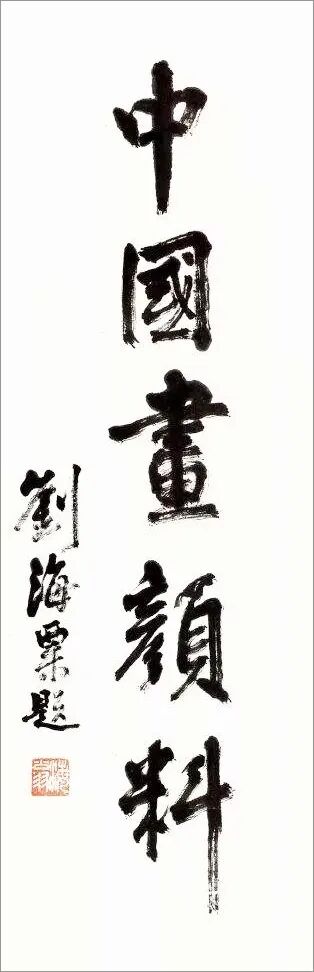 中國畫顔料
劉海粟題